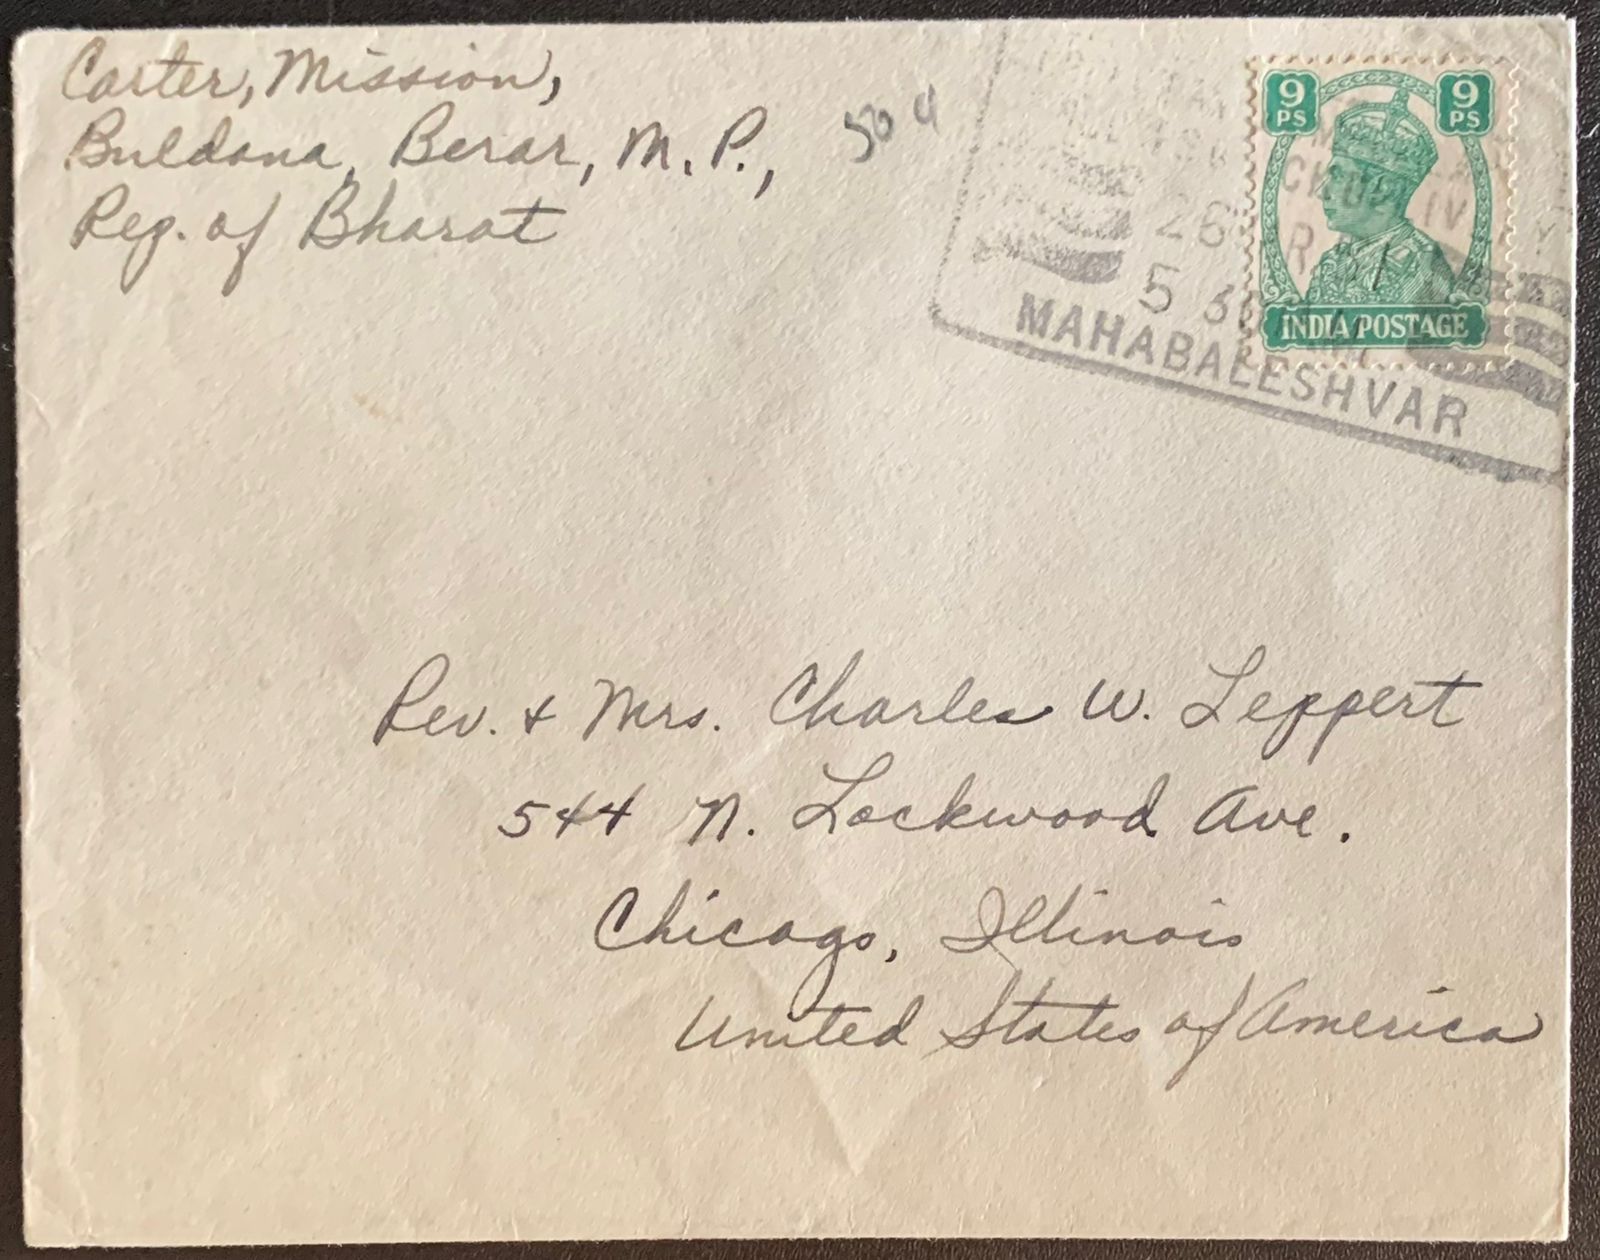 Carter, Mission,
Buldana, Berar, M. P.,
Rep. of Bharat
9 PS
9 PS
INDIA POSTAGE
28
5 30
MAHABALESHVAR
Rev. + Mrs. Charles W. Leppert
544 N. Lockwood Ave.
Chicago, Illinois
United States of America